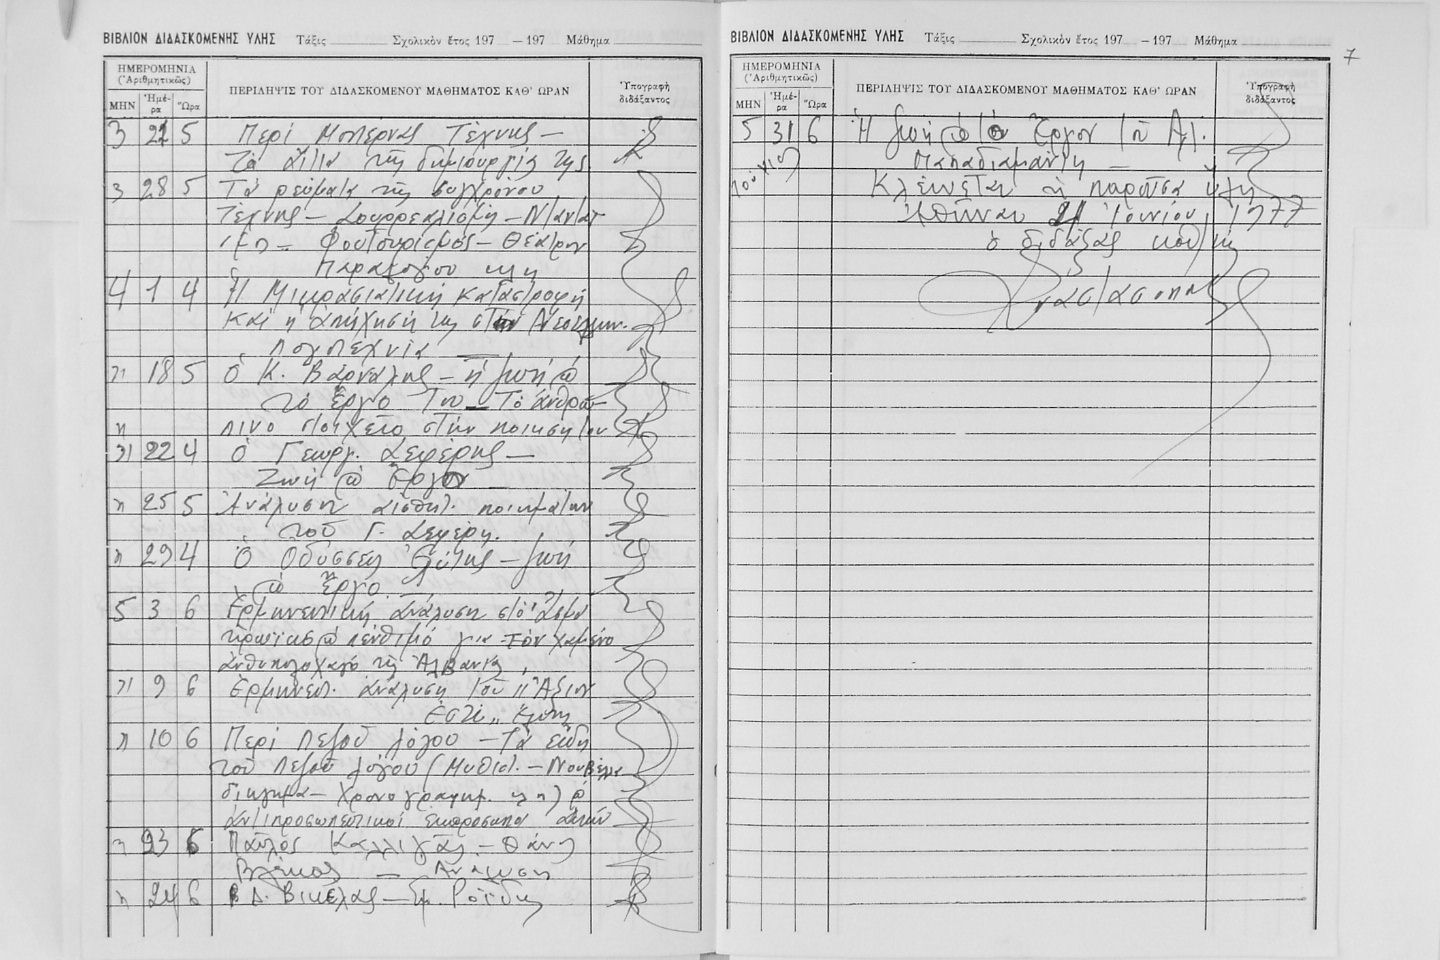 ΒΙΒΛΙΟΝ ΔΙΔΑΣΚΟΜΕΝΗΣ ΥΛΗΣ Τάξις Σχολικὸν ἔτος 197 – 197 Μάθημα
ΗΜΕΡΟΜΗΝΙΑ
(Ἀριθμητικῶς)
ΜΗΝ Ἡμέρα Ὥρα
ΠΕΡΙΛΗΨΙΣ ΤΟΥ ΔΙΔΑΣΚΟΜΕΝΟΥ ΜΑΘΗΜΑΤΟΣ ΚΑΘ' ΩΡΑΝ
Ὑπογραφὴ
διδάξαντος
3 21 5 Περί Μοντέρνας Τέχνης –
Τά αἴτια τῆς δημιουργίας της
3 28 5 Τά ρεύματα τῆς συγχρόνου
Τέχνης – Σουρρεαλισμός – Νταντα-
ϊσμ – Φουτουρισμός – Θέατρον
Παραλόγου κλπ
4 1 4 Ἡ Μικρασιατική καταστροφή
καί ἡ ἀπήχησή της στήν Νεοελλην.
Λογοτεχνία
〃 18 5 Ὁ Κ. Βάρναλης – ἡ ζωή καί
τό ἔργο του – Τό ἀνθρώ-
〃 πινο στοιχεῖο στήν ποίησή του
〃 22 4 Ὁ Γεωργ. Σεφέρης –
Ζωή καί Ἔργον –
〃 25 5 Ἀνάλυση αἰσθητ. ποιημάτων
τοῦ Γ. Σεφέρη.
〃 29 4 Ὁ Ὀδυσσέας Ἐλύτης – ζωή
καί ἔργο
5 3 6 Ἑρμηνευτική ἀνάλυση στό Ἆσμα
ἡρωικό καί πένθιμο για τόν χαμένο
ἀνθυπολοχαγό τῆς Ἀλβανίας.
〃 9 6 Ἑρμηνευτ. ἀνάλυση τοῦ "Ἄξιον
Ἐστί" Ἐλύτη
〃 10 6 Περί Πεζοῦ λόγου – Τά εἴδη
τοῦ Πεζοῦ λόγου (Μυθιστ. – Νουβέλλα
διήγημα – χρονογράφημ. κλπ)
ἀντιπροσωπευτικοί ἐκπρόσωποι αὐτῶν
〃 23 6 Παῦλος Καλλιγᾶς – Θάνος
Βλέκας – Ἀνάλυση
〃 24 6 Δ. Βικέλας – Ἐμ. Ροΐδης
ΒΙΒΛΙΟΝ ΔΙΔΑΣΚΟΜΕΝΗΣ ΥΛΗΣ Τάξις Σχολικὸν ἔτος 197 – 197 Μάθημα
7
ΗΜΕΡΟΜΗΝΙΑ
(Ἀριθμητικῶς)
ΜΗΝ Ἡμέρα Ὥρα
ΠΕΡΙΛΗΨΙΣ ΤΟΥ ΔΙΔΑΣΚΟΜΕΝΟΥ ΜΑΘΗΜΑΤΟΣ ΚΑΘ' ΩΡΑΝ
Ὑπογραφὴ
διδάξαντος
5 31 6 Ἡ ζωή καί τό Ἔργον τοῦ Ἀλ.
Παπαδιαμάντη –
Κλείνεται ἡ παροῦσα ὕλη
Ἀθῆναι 21 Ἰουνίου 1977
ὁ διδάξας καθ/τής